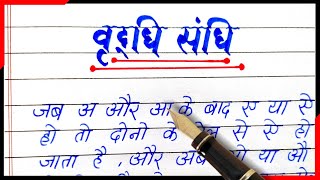 वृद्धि संधि
जब अ और आ के बाद ए या ऐ
हो तो दोनो के मेल से ऐ हो
जाता है , और अब ओ या औ